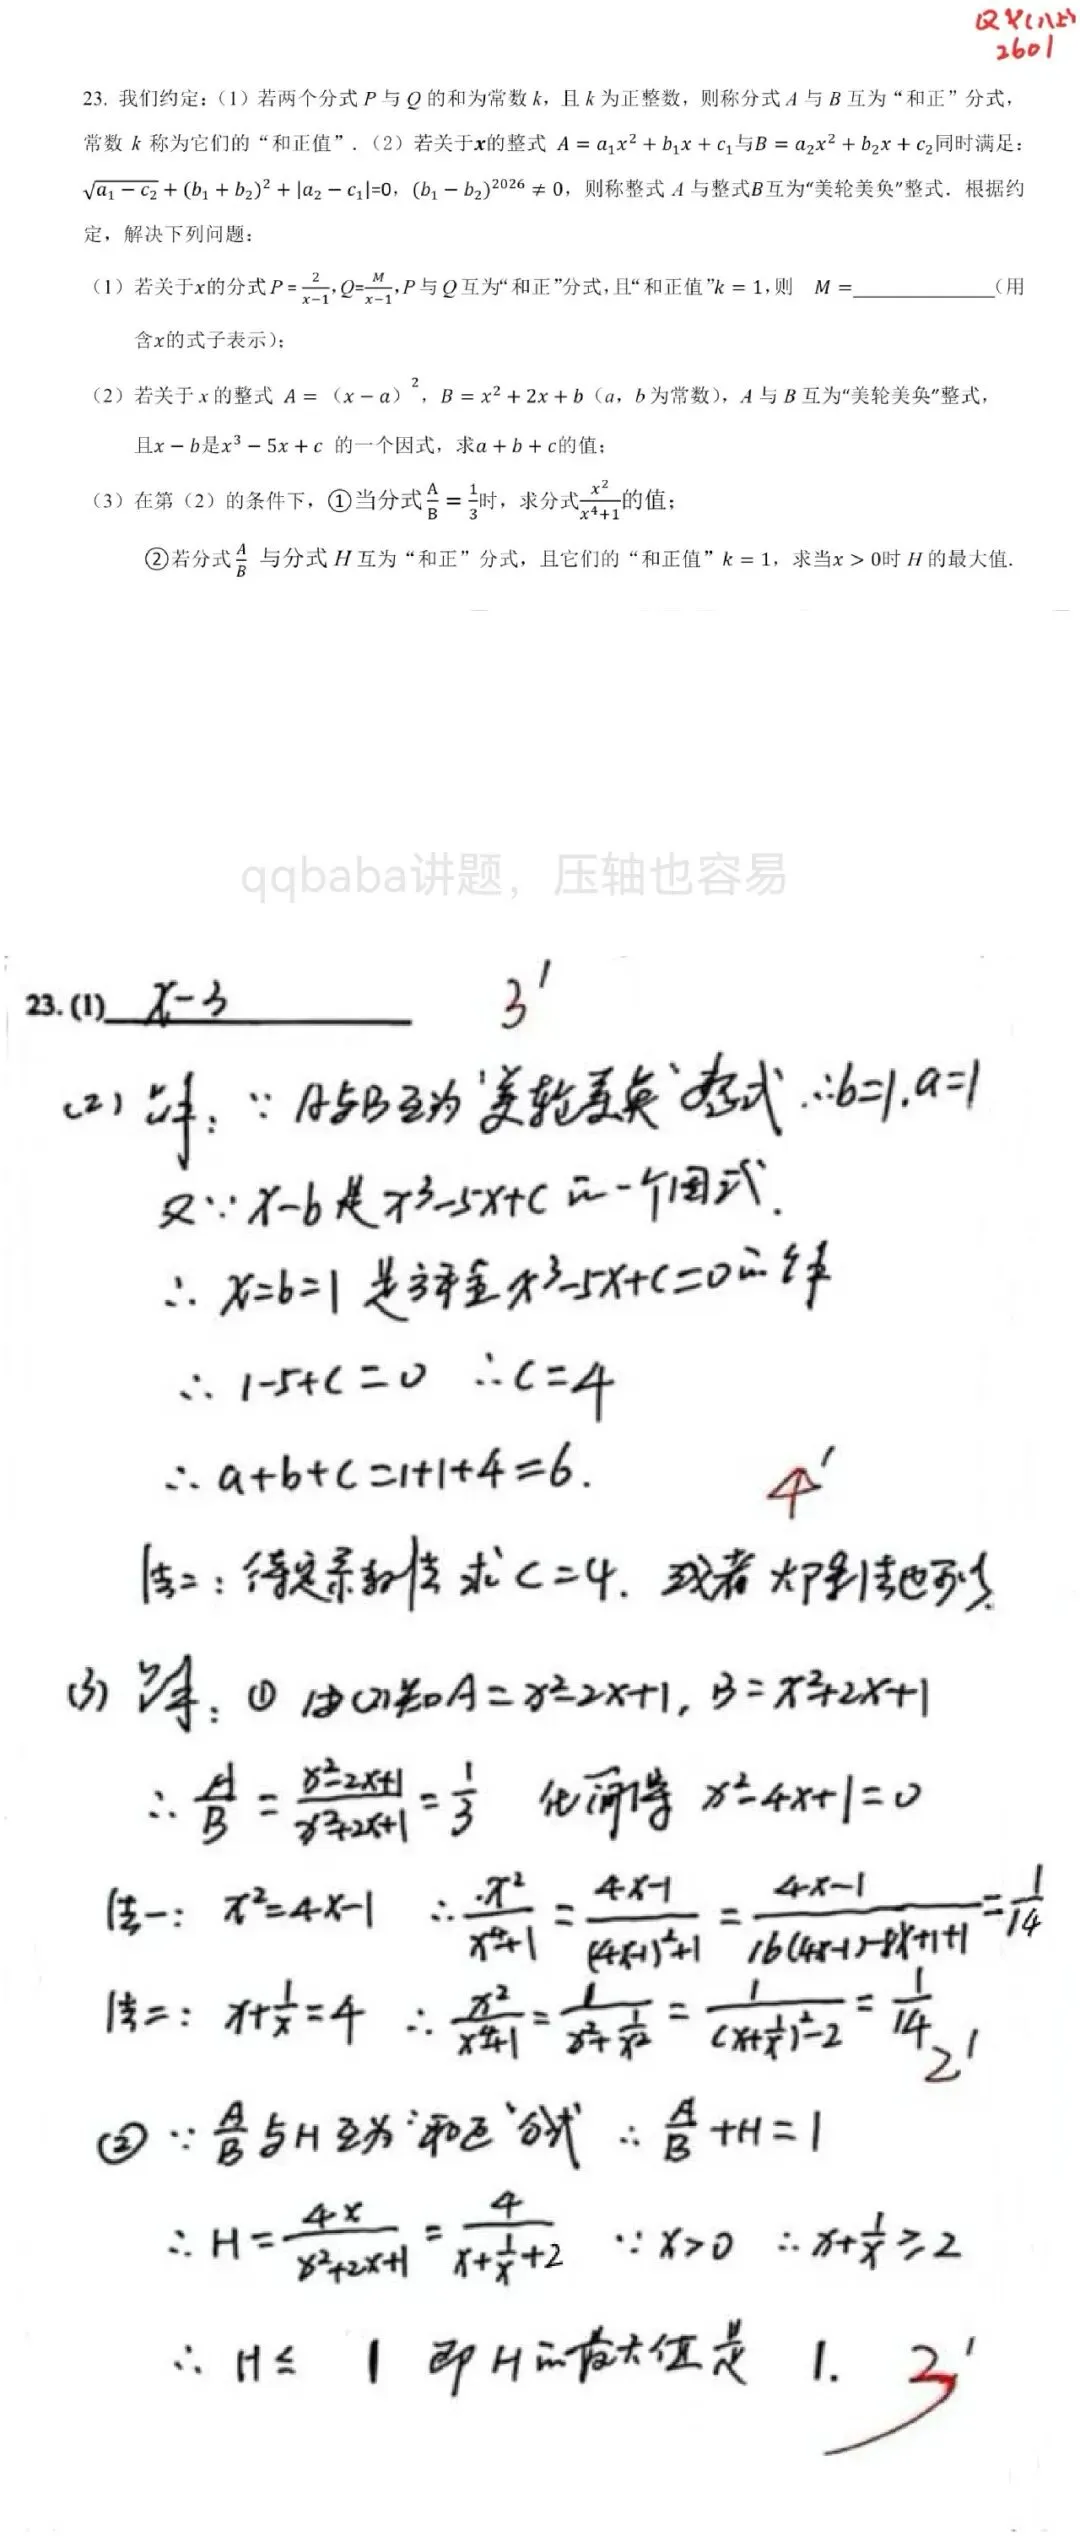 QX(八上)
2601
23. 我们约定：（1）若两个分式 P 与 Q 的和为常数 k，且 k 为正整数，则称分式 A 与 B 互为“和正”分式，
常数 k 称为它们的“和正值”.（2）若关于x的整式 A = a₁x² + b₁x + c₁与B = a₂x² + b₂x + c₂同时满足：
√(a₁ − c₂) + (b₁ + b₂)² + |a₂ − c₁|=0，(b₁ − b₂)²⁰²⁶ ≠ 0，则称整式 A 与整式B互为“美轮美奂”整式．根据约
定，解决下列问题：
（1）若关于x的分式 P = 2/(x−1), Q= M/(x−1), P 与 Q 互为“和正”分式，且“和正值”k = 1，则 M =____________（用
含x的式子表示）；
（2）若关于 x 的整式 A = （x − a）²，B = x² + 2x + b（a，b 为常数），A 与 B 互为“美轮美奂”整式，
且x − b是x³ − 5x + c 的一个因式，求a + b + c的值；
（3）在第（2）的条件下，①当分式A/B = 1/3时，求分式x²/(x⁴+1)的值；
②若分式A/B 与分式 H 互为“和正”分式，且它们的“和正值”k = 1，求当x > 0时 H 的最大值．
qqbaba讲题，压轴也容易
23. (1) x−3 3′
(2) 解：∵ A与B互为“美轮美奂”整式 ∴b=1, a=1
又∵ x−b 是 x³−5x+c 的一个因式.
∴ x=b=1 是方程 x³−5x+c=0的解
∴ 1−5+c=0 ∴c=4
∴ a+b+c=1+1+4=6. 4′
法二：待定系数法求c=4. 或者大除法也可以.
(3) 解：① 由(2)知 A=x²−2x+1, B=x²+2x+1
∴ A/B = (x²−2x+1)/(x²+2x+1) = 1/3 化简得 x²−4x+1=0
法一：x²=4x−1 ∴ x²/(x⁴+1) = (4x−1)/((4x−1)²+1) = (4x−1)/(16(4x−1)−8x+1+1) = 1/14
法二：x+1/x=4 ∴ x²/(x⁴+1) = 1/(x²+1/x²) = 1/((x+1/x)²−2) = 1/14 2′
② ∵ A/B 与H互为“和正”分式 ∴ A/B +H=1
∴ H= 4x/(x²+2x+1) = 4/(x+1/x+2) ∵ x>0 ∴ x+1/x ≥2
∴ H≤ 1 即H的最大值是 1. 3′